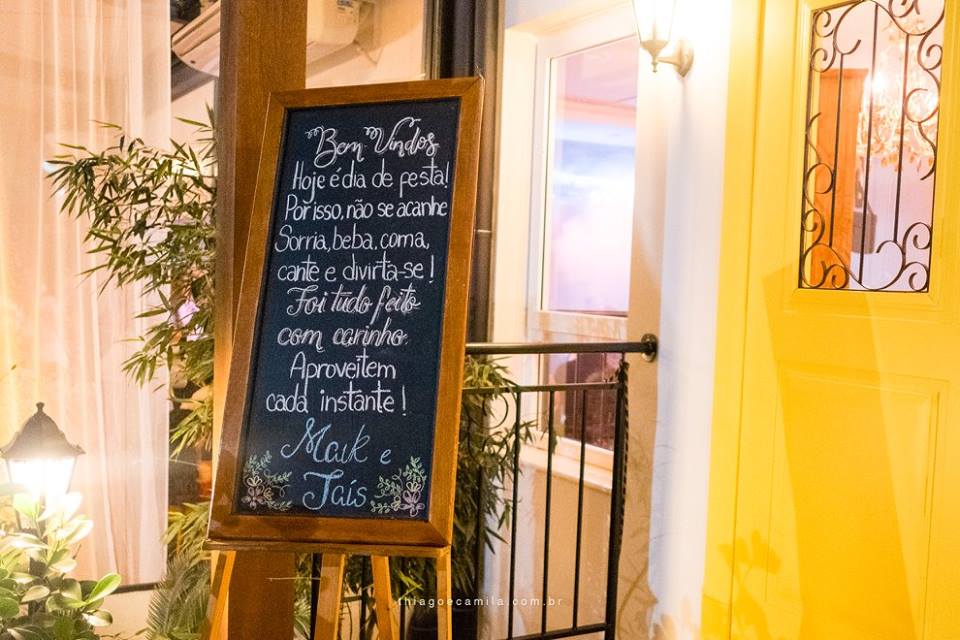 Bem Vindos
Hoje é dia de festa!
Por isso, não se acanhe
Sorria, beba, coma,
cante e divirta-se!
Foi tudo feito
com carinho.
Aproveitem
cada instante!
Maik e
Taís
thiagoecamila.com.br